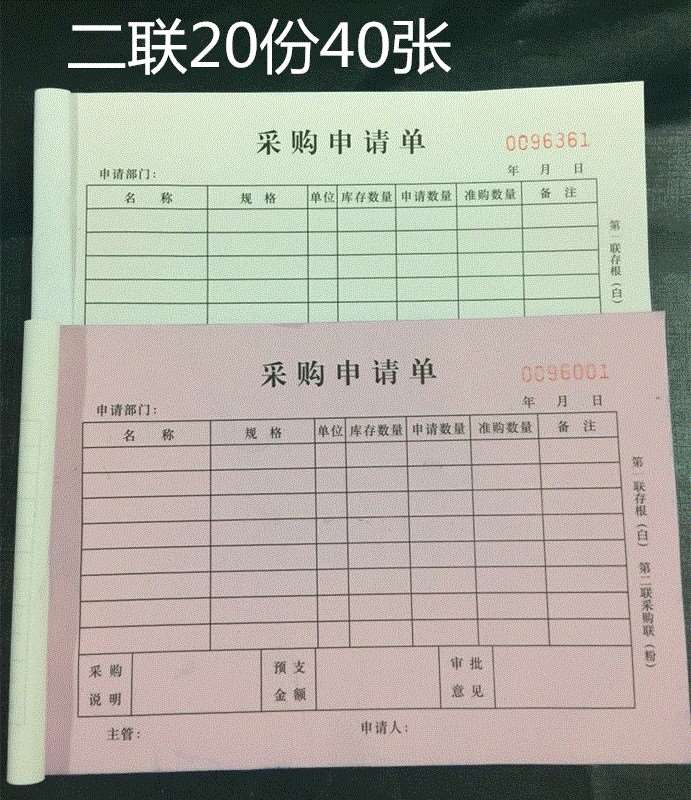 二联20份40张
采购申请单
0096361
申请部门：
年 月 日
名 称 规 格 单位 库存数量 申请数量 准购数量 备 注
第一联存根（白）
采购申请单
0096001
申请部门：
年 月 日
名 称 规 格 单位 库存数量 申请数量 准购数量 备 注
第一联存根（白） 第二联采购联（粉）
采购说明 预支金额 审批意见
主管： 申请人：